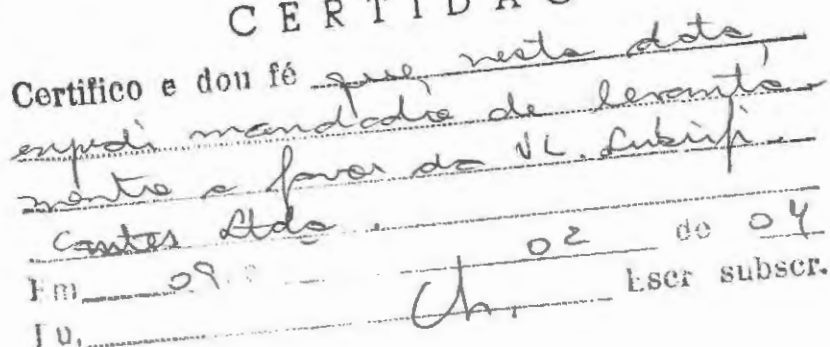 CERTIDÃO
Certifico e dou fé que, nesta data,
expedi mandado de levanta-
mento a favor da VL. Lubrifi-
cantes Ltda.
Em 09 02 de 04
Eu, Escr subscr.